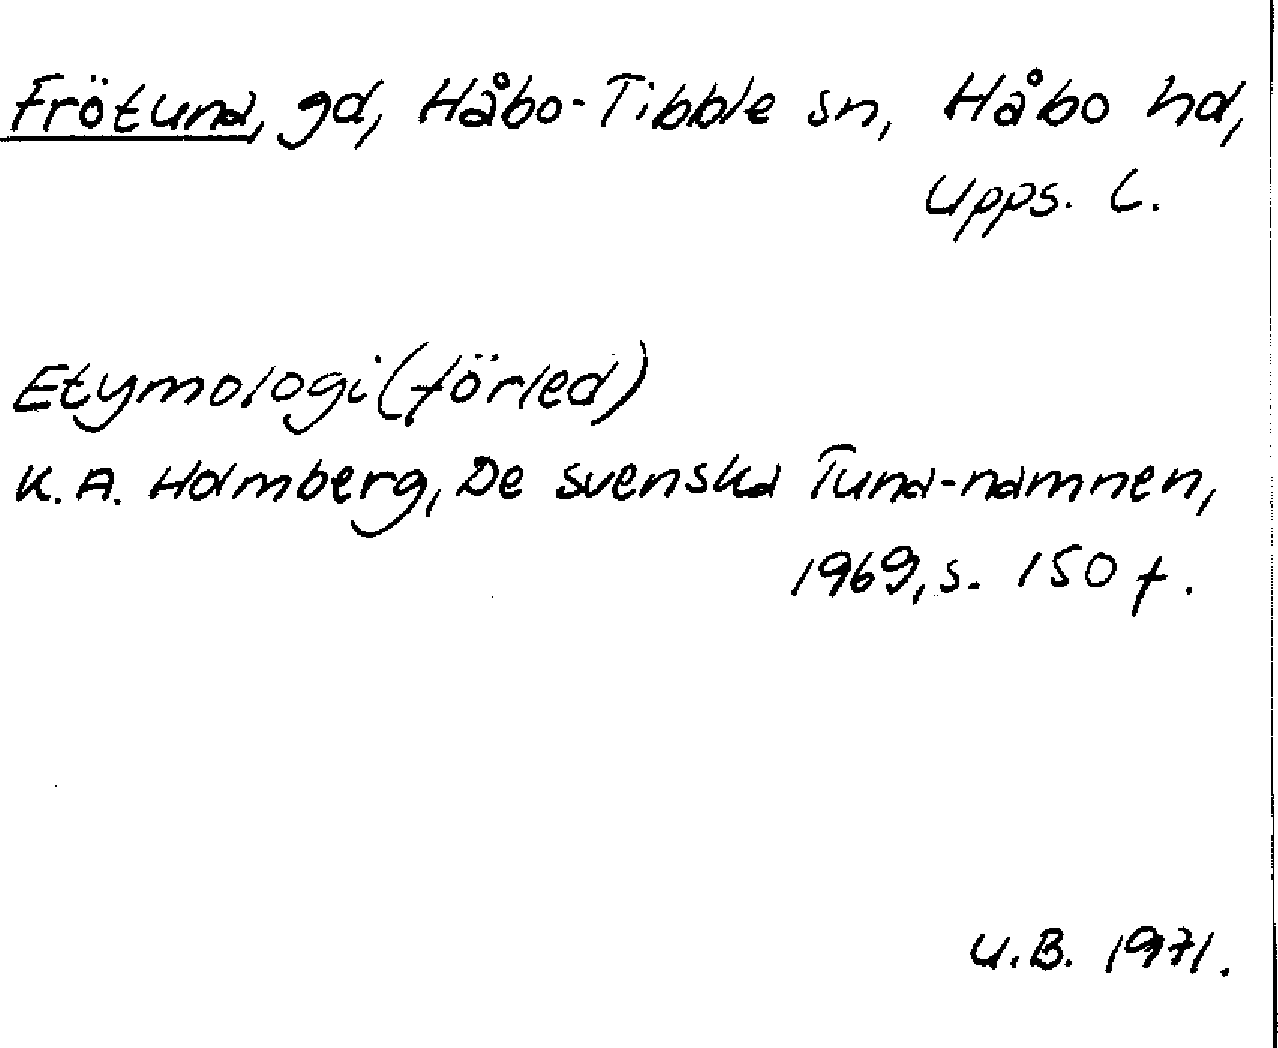 Frötuna, gd, Håbo-Tibble sn, Håbo hd,
Upps. L.
Etymologi (förled)
K.A. Holmberg, De svenska Tuna-namnen,
1969, s. 150 f.
U.B. 1971.